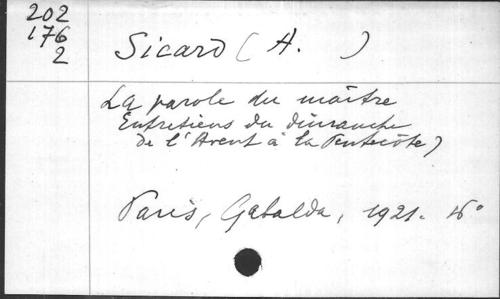 202
176
2
Sicard (A. )
La parole du maître
Entretiens du dimanche
de l'Avent à la Pentecôte)
Paris, Gabalda, 1921. 16°